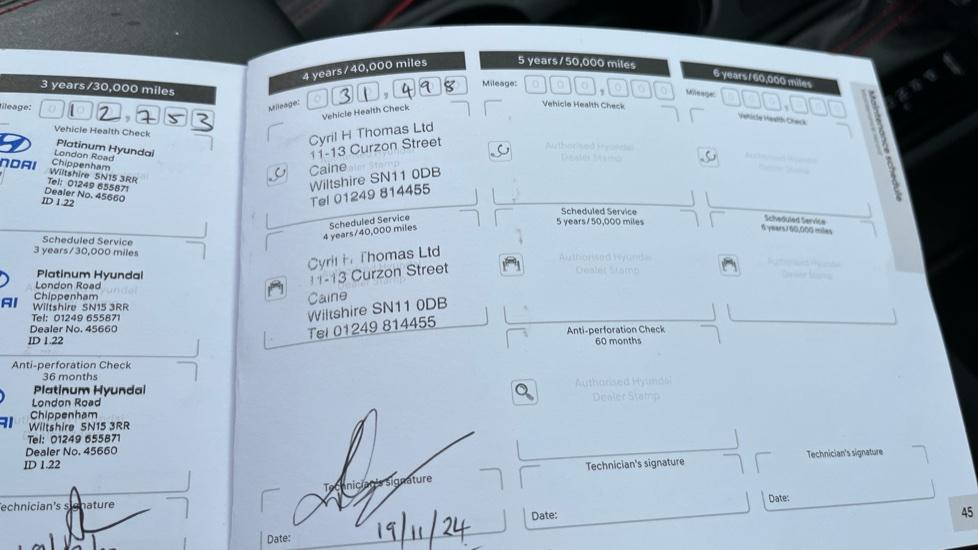 3 years/30,000 miles
Mileage: 012,753
Vehicle Health Check
Platinum Hyundai
London Road
Chippenham
Wiltshire SN15 3RR
Tel: 01249 655871
Dealer No. 45660
ID 1.22
Scheduled Service
3 years/30,000 miles
Platinum Hyundai
London Road
Chippenham
Wiltshire SN15 3RR
Tel: 01249 655871
Dealer No. 45660
ID 1.22
Anti-perforation Check
36 months
Platinum Hyundai
London Road
Chippenham
Wiltshire SN15 3RR
Tel: 01249 655871
Dealer No. 45660
ID 1.22
Technician's signature
4 years/40,000 miles
Mileage: 031,498
Vehicle Health Check
Cyril H Thomas Ltd
11-13 Curzon Street
Caine
Wiltshire SN11 0DB
Tel 01249 814455
Scheduled Service
4 years/40,000 miles
Cyril H Thomas Ltd
11-13 Curzon Street
Caine
Wiltshire SN11 0DB
Tel 01249 814455
Technician's signature
Date: 19/11/24
5 years/50,000 miles
Mileage: 000,000
Vehicle Health Check
Authorised Hyundai
Dealer Stamp
Scheduled Service
5 years/50,000 miles
Authorised Hyundai
Dealer Stamp
Anti-perforation Check
60 months
Authorised Hyundai
Dealer Stamp
Technician's signature
Date:
6 years/60,000 miles
Mileage: 000,000
Vehicle Health Check
Authorised Hyundai
Dealer Stamp
Scheduled Service
6 years/60,000 miles
Authorised Hyundai
Dealer Stamp
Technician's signature
Date:
Maintenance schedule
45